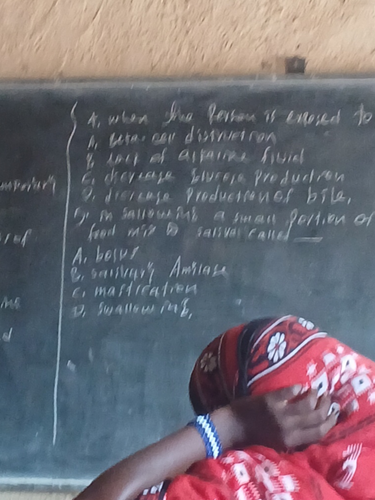 4. when the Person is exposed to
A. Beta-cell distruction
B. Lack of alkaline fluid
C. dicrease Glucose Production
D. dicrease Production of bile.
5. in sallowing a small Portion of
food mix salival called ___
A. bolus
B. salivary Amilase
C. mastication
D. swallowing.